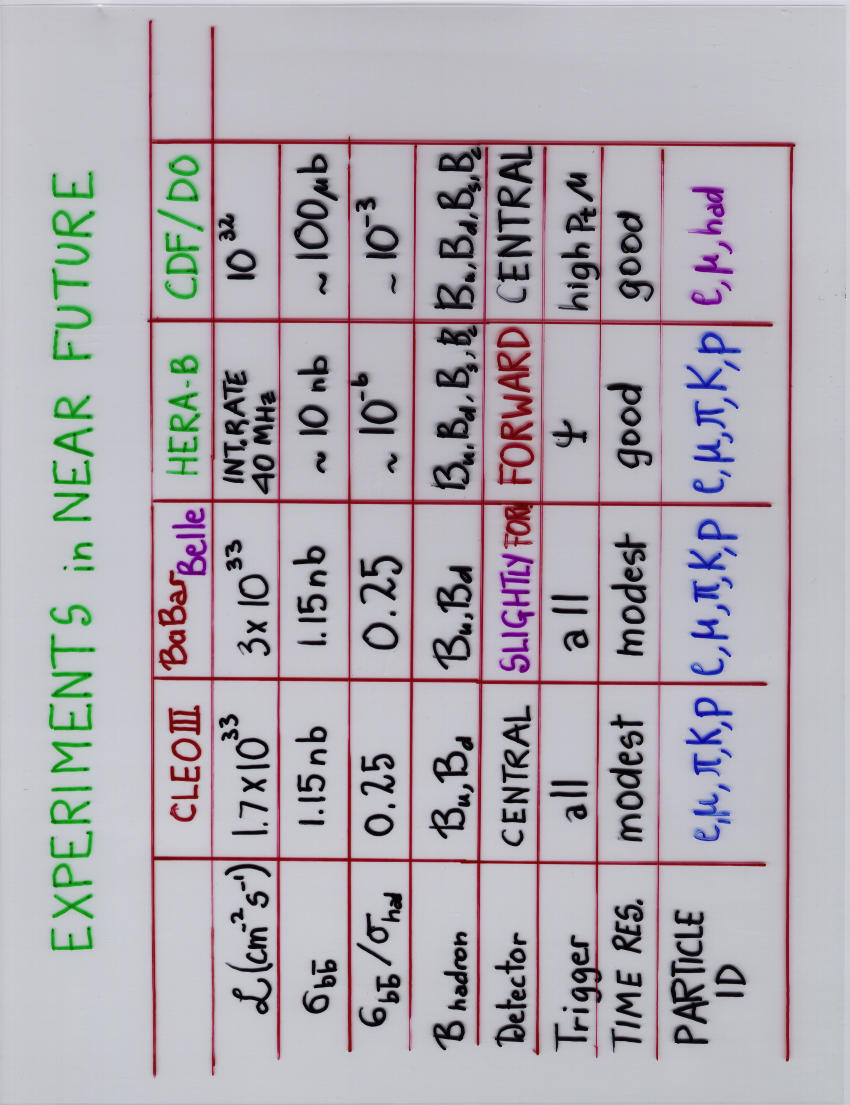 EXPERIMENTS in NEAR FUTURE
CLEO III BaBar Belle HERA-B CDF/D0
L (cm⁻² s⁻¹) 1.7 x 10³³ 3 x 10³³ INT. RATE 40 MHz 10³²
σbb̄ 1.15 nb 1.15 nb ~ 10 nb ~ 100 μb
σbb̄ / σhad 0.25 0.25 ~ 10⁻⁶ ~ 10⁻³
B hadron Bu, Bd Bu, Bd Bu, Bd, Bs, Bc Bu, Bd, Bs, Bc
Detector CENTRAL SLIGHTLY FORW FORWARD CENTRAL
Trigger all all ψ high Pt μ
TIME RES. modest modest good good
PARTICLE ID e, μ, π, K, p e, μ, π, K, p e, μ, π, K, p e, μ, had